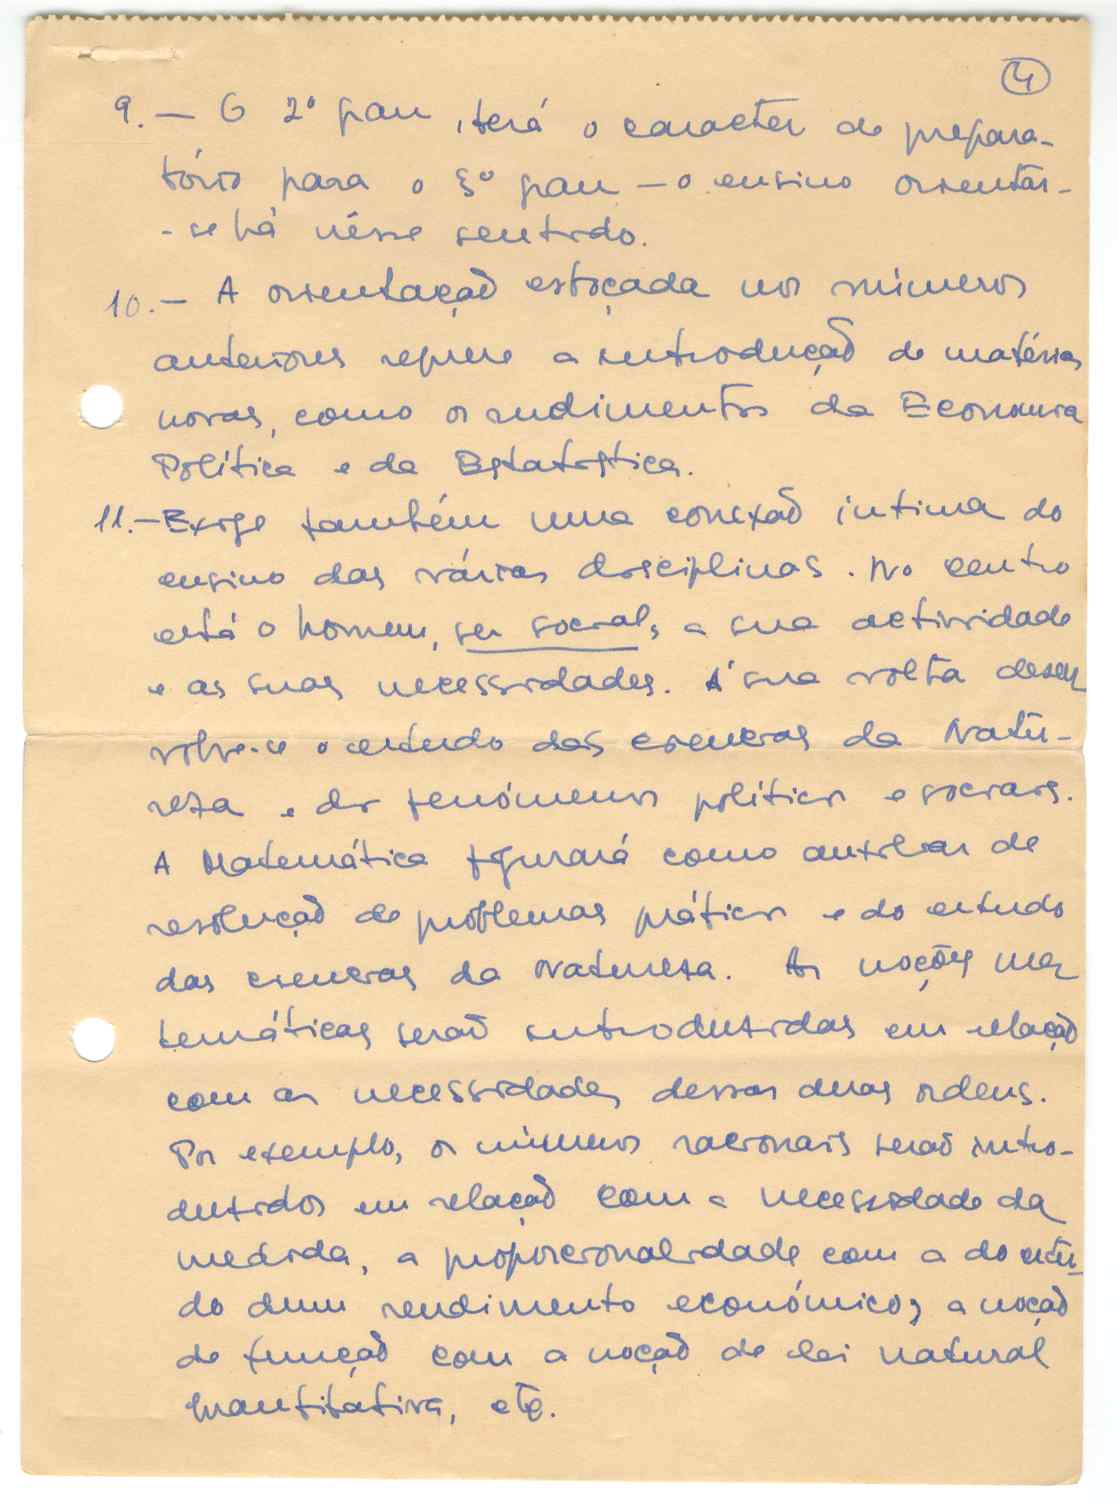 4
9. — O 2º grau, terá o caracter de prepara-
tório para o 3º grau — o ensino orientar-
-se há nésse sentido.
10. — A orientação esboçada nos números
anteriores requere a introdução de matérias
novas, como os rudimentos da Economia
Política e da Estatística.
11. — Exige também uma conexão intima do
ensino das várias disciplinas. No centro
está o homem, ser social, a sua actividade
e as suas necessidades. Á sua volta desen
volve-se o estudo das ciencias da Natu-
reza e dos fenómenos políticos e sociais.
A Matemática figurará como auxiliar de
resolução de problemas práticos e do estudo
das ciencias da Natureza. As noções ma
temáticas serão introduzidas em relação
com as necessidades dessas duas ordens.
Por exemplo, os números racionais serão intro-
duzidos em relação com a necessidade da
medida, a proporcionalidade com a do estu-
do dum rendimento económico, a noção
de função com a noção de lei natural
quantitátiva, etc.